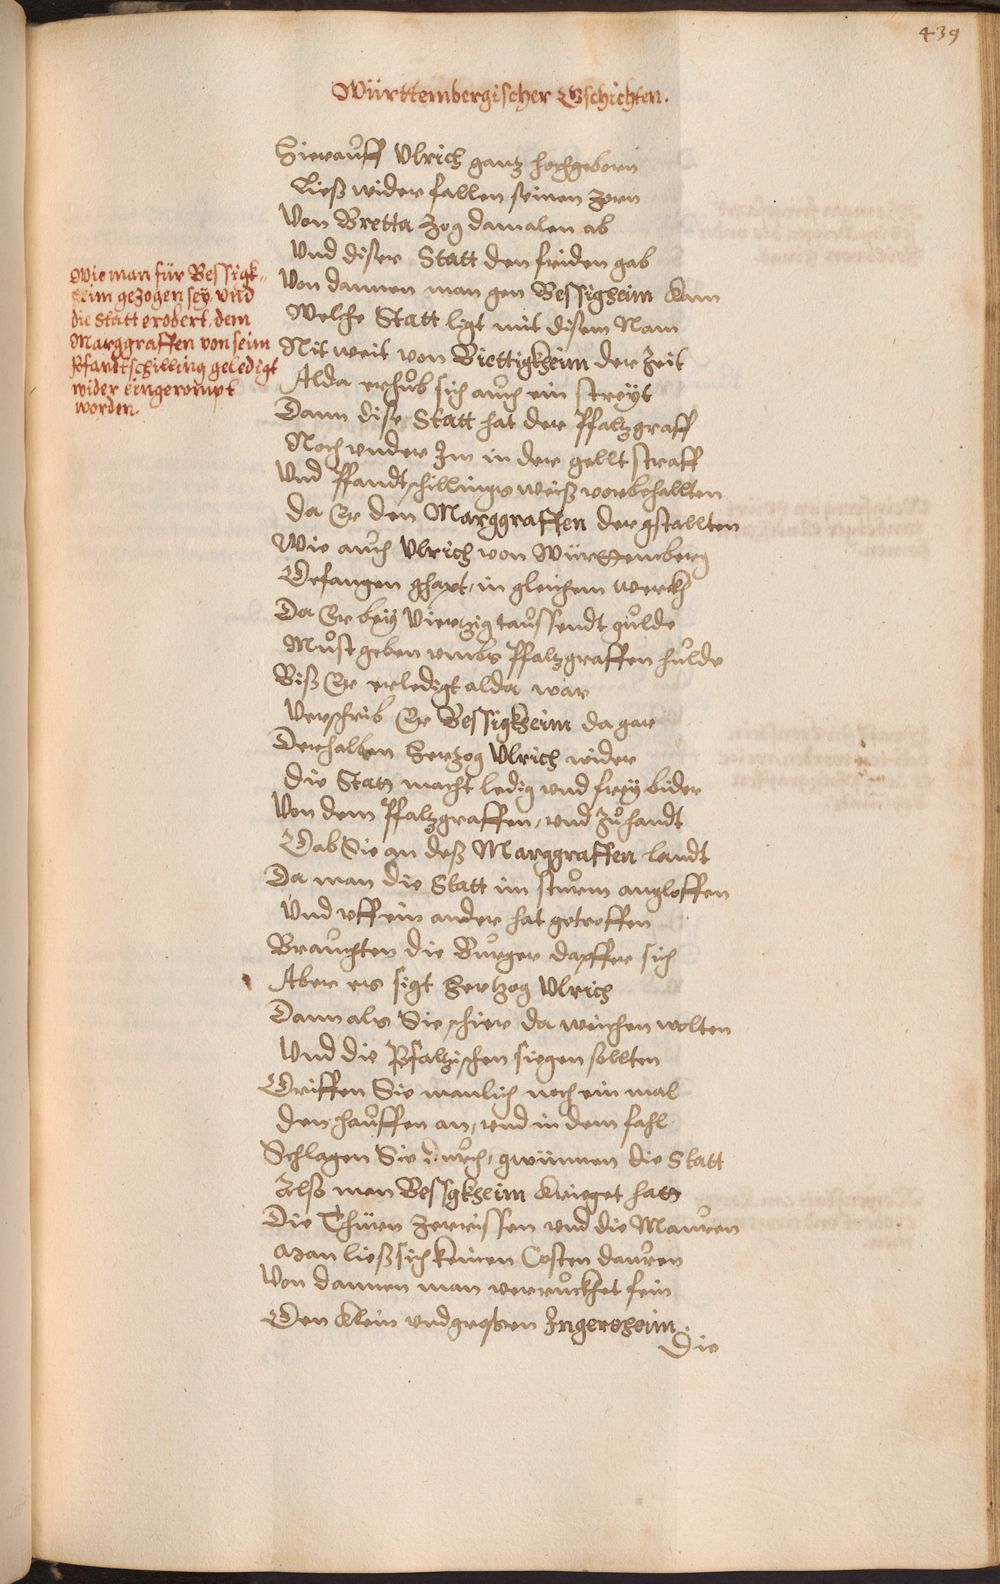 439
Württembergischer Gschichten.
Hierauff Ulrich ganz hochgeborn
Ließ wider fallen seinen zorn
Von Bretta zog damalen ab
Und diser Statt den friden gab
Wie man für Bessigk-
heim gezogen sey, und
die Statt erobert, dem
Marggraffen von seim
Pfandtschilling geledigt
wider eingerompt
worden.
Von dannen man gen Bessigheim kam
Welche Statt ligt mit disem Nam
Nit weit von Biettigkheim der Zeit
Alda erhub sich auch ein streyt
Dann dise Statt hat der Pfaltzgraff
Noch under Im in der gellt straff
Und Pfandtschillings weiß vorbehallten
Da Er den Marggraffen der gstallten
Wie auch Ulrich von Württemberg
Gefangen ghapt, in gleichem werckh
Da Er bey Viertzig taussendt gulde
Must geben umbs Pfaltzgraffen hulde
Biß Er erledigt alda war
Verschrib Er Bessigkheim da gar
Derhalben Hertzog Ulrich wider
Die Statt macht ledig und frey bider
Von dem Pfaltzgraffen, und zuhandt
Gab Sie an deß Marggraffen landt
Da man die Statt im sturm angloffen
Und uff ein ander hat getroffen
Brauchten die Burger dapffer sich
Aber es sigt Hertzog Ulrich
Dann als Sie schier da weichen wolten
Und die Pfaltzischen siegen sollten
Griffen Sie manlich noch ein mal
Den hauffen an, und in dem fahl
Schlagen Sie durch, gwünnen die Statt
Also man Bessgkheim krieget hatt
Die Thürn zerrissen und die Mauren
Man ließ sich keinen Costen dauren
Von dannen man verruckhet fein
Gen Klein und grossen Ingersheim.
Die